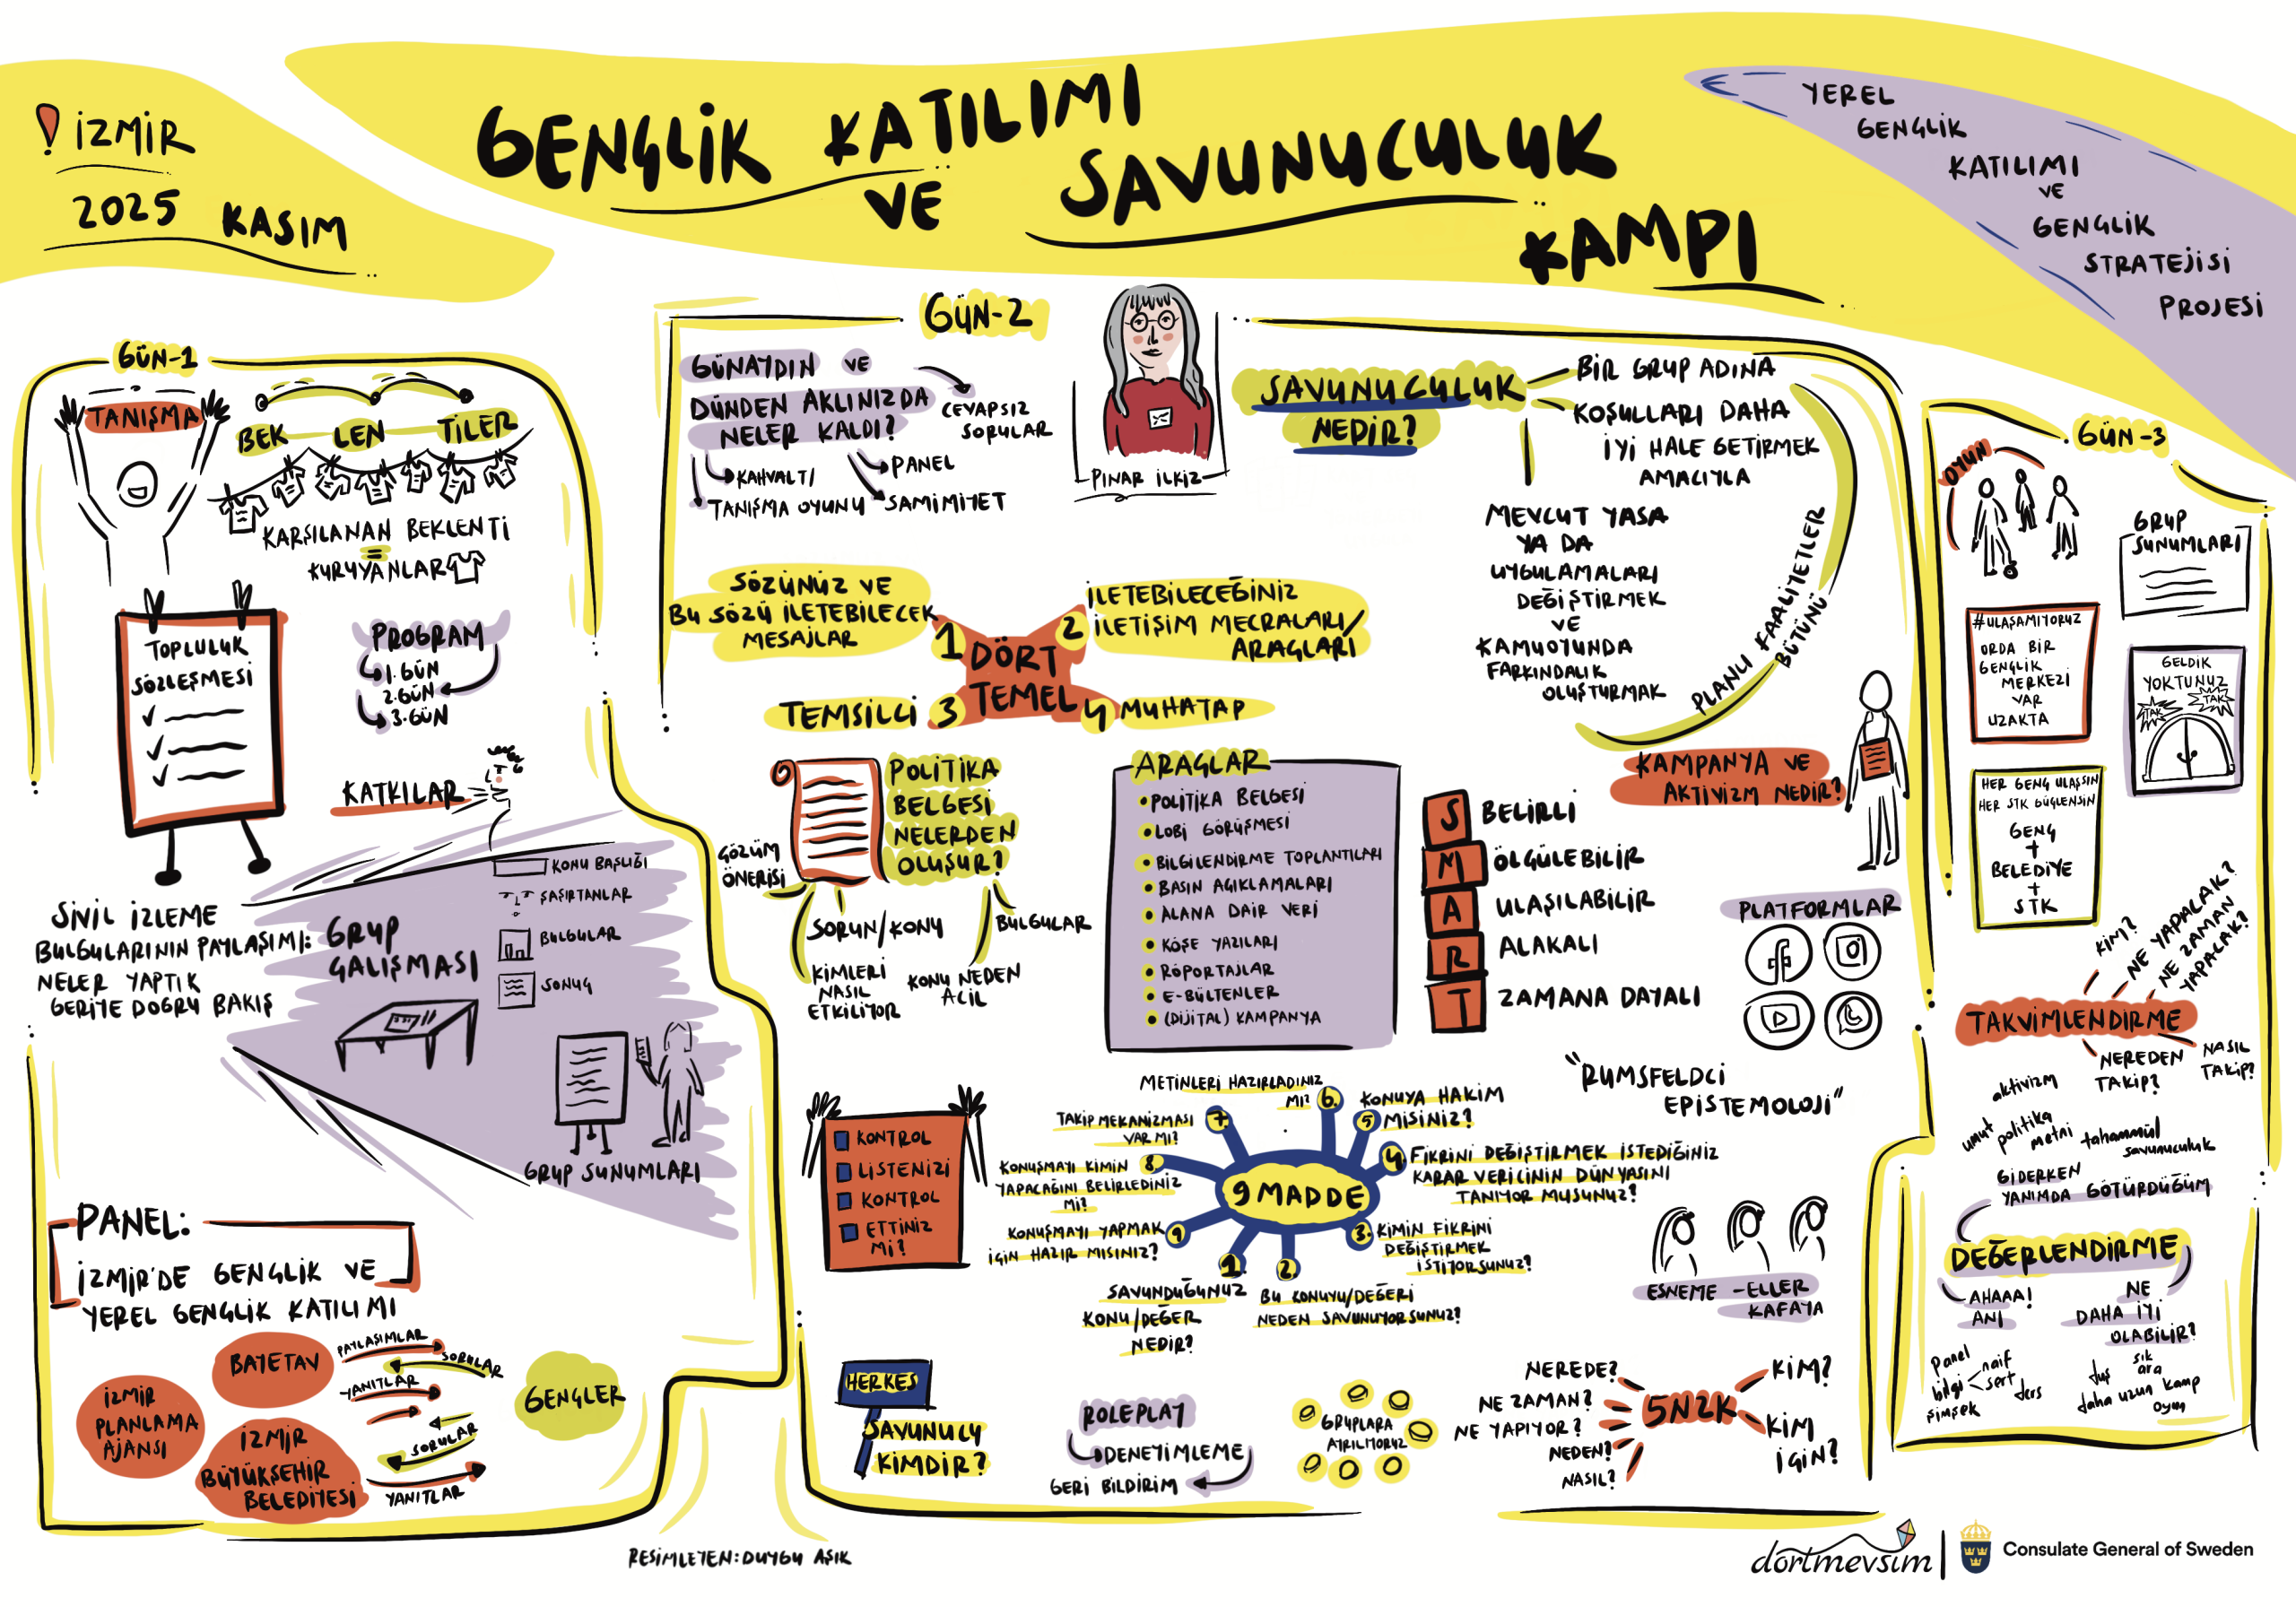 İZMİR
2025 KASIM
GENÇLİK KATILIMI
VE SAVUNUCULUK
KAMPI
YEREL
GENÇLİK
KATILIMI
VE
GENÇLİK
STRATEJİSİ
PROJESİ
GÜN-1
TANIŞMA
BEK LEN TİLER
KARŞILANAN BEKLENTİ
=
KURUYANLAR
TOPLULUK
SÖZLEŞMESİ
PROGRAM
1.GÜN
2.GÜN
3.GÜN
KATKILAR
SİVİL İZLEME
BULGULARININ PAYLAŞIMI:
NELER YAPTIK
GERİYE DOĞRU BAKIŞ
GRUP
ÇALIŞMASI
KONU BAŞLIĞI
ŞAŞIRTANLAR
BULGULAR
SONUÇ
GRUP SUNUMLARI
PANEL:
İZMİR'DE GENÇLİK VE
YEREL GENÇLİK KATILIMI
BAYETAV
İZMİR
PLANLAMA
AJANSI
İZMİR
BÜYÜKŞEHİR
BELEDİYESİ
PAYLAŞIMLAR
SORULAR
YANITLAR
SORULAR
YANITLAR
GENÇLER
GÜN-2
GÜNAYDIN VE
DÜNDEN AKLINIZDA
NELER KALDI?
CEVAPSIZ
SORULAR
KAHVALTI
PANEL
TANIŞMA OYUNU
SAMİMİYET
PINAR İLKİZ
SAVUNUCULUK
NEDİR?
BİR GRUP ADINA
KOŞULLARI DAHA
İYİ HALE GETİRMEK
AMACIYLA
MEVCUT YASA
YA DA
UYGULAMALARI
DEĞİŞTİRMEK
VE
KAMUOYUNDA
FARKINDALIK
OLUŞTURMAK
PLANLI FAALİYETLER
BÜTÜNÜ
DÖRT
TEMEL
1
SÖZÜNÜZ VE
BU SÖZÜ İLETEBİLECEK
MESAJLAR
2
İLETEBİLECEĞİNİZ
İLETİŞİM MECRALARI/
ARAÇLARI
TEMSİLCİ 3
4 MUHATAP
POLİTİKA
BELGESİ
NELERDEN
OLUŞUR?
ÇÖZÜM
ÖNERİSİ
SORUN/KONU
BULGULAR
KİMLERİ
NASIL
ETKİLİYOR
KONU NEDEN
ACİL
ARAÇLAR
POLİTİKA BELGESİ
LOBİ GÖRÜŞMESİ
BİLGİLENDİRME TOPLANTILARI
BASIN AÇIKLAMALARI
ALANA DAİR VERİ
KÖŞE YAZILARI
RÖPORTAJLAR
E-BÜLTENLER
(DİJİTAL) KAMPANYA
S BELİRLİ
M ÖLÇÜLEBİLİR
A ULAŞILABİLİR
R ALAKALI
T ZAMANA DAYALI
KAMPANYA VE
AKTİVİZM NEDİR?
PLATFORMLAR
"RUMSFELDCİ
EPİSTEMOLOJİ"
KONTROL
LİSTENİZİ
KONTROL
ETTİNİZ
Mİ?
9 MADDE
1.
SAVUNDUĞUNUZ
KONU/DEĞER
NEDİR?
2.
BU KONUYU/DEĞERİ
NEDEN SAVUNUYORSUNUZ?
3. KİMİN FİKRİNİ
DEĞİŞTİRMEK
İSTİYORSUNUZ?
4. FİKRİNİ DEĞİŞTİRMEK İSTEDİĞİNİZ
KARAR VERİCİNİN DÜNYASINI
TANIYOR MUSUNUZ?
5 KONUYA HAKİM
MİSİNİZ?
METİNLERİ HAZIRLADINIZ
MI? 6.
TAKİP MEKANİZMASI 7
VAR MI?
KONUŞMAYI KİMİN 8.
YAPACAĞINI BELİRLEDİNİZ
Mİ?
KONUŞMAYI YAPMAK 9
İÇİN HAZIR MISINIZ?
ESNEME - ELLER
KAFAYA
HERKES
SAVUNUCU
KİMDİR?
ROLEPLAY
DENEYİMLEME
GERİ BİLDİRİM
GRUPLARA
AYRILIYORUZ
5N2K
NEREDE?
NE ZAMAN?
NE YAPIYOR?
NEDEN?
NASIL?
KİM?
KİM
İÇİN?
GÜN-3
OYUN
GRUP
SUNUMLARI
#ULAŞAMIYORUZ
ORDA BİR
GENÇLİK
MERKEZİ
VAR
UZAKTA
GELDİK
YOKTUNUZ
TAK
TAK
HER GENÇ ULAŞSIN
HER STK GÜÇLENSİN
GENÇ
+
BELEDİYE
+
STK
KİM?
NE YAPACAK?
NE ZAMAN
YAPACAK?
TAKVİMLENDİRME
NEREDEN
TAKİP?
NASIL
TAKİP?
aktivizm
umut
politika
metni
tahammül
savunuculuk
GİDERKEN
YANIMDA GÖTÜRDÜĞÜM
DEĞERLENDİRME
AHAAA!
ANI
NE
DAHA İYİ
OLABİLİR?
panel
bilgi
naif
sert
ders
şimşek
duş
sık
ara
daha uzun kamp
oyun
RESİMLEYEN: DUYGU AŞIK
dörtmevsim
Consulate General of Sweden